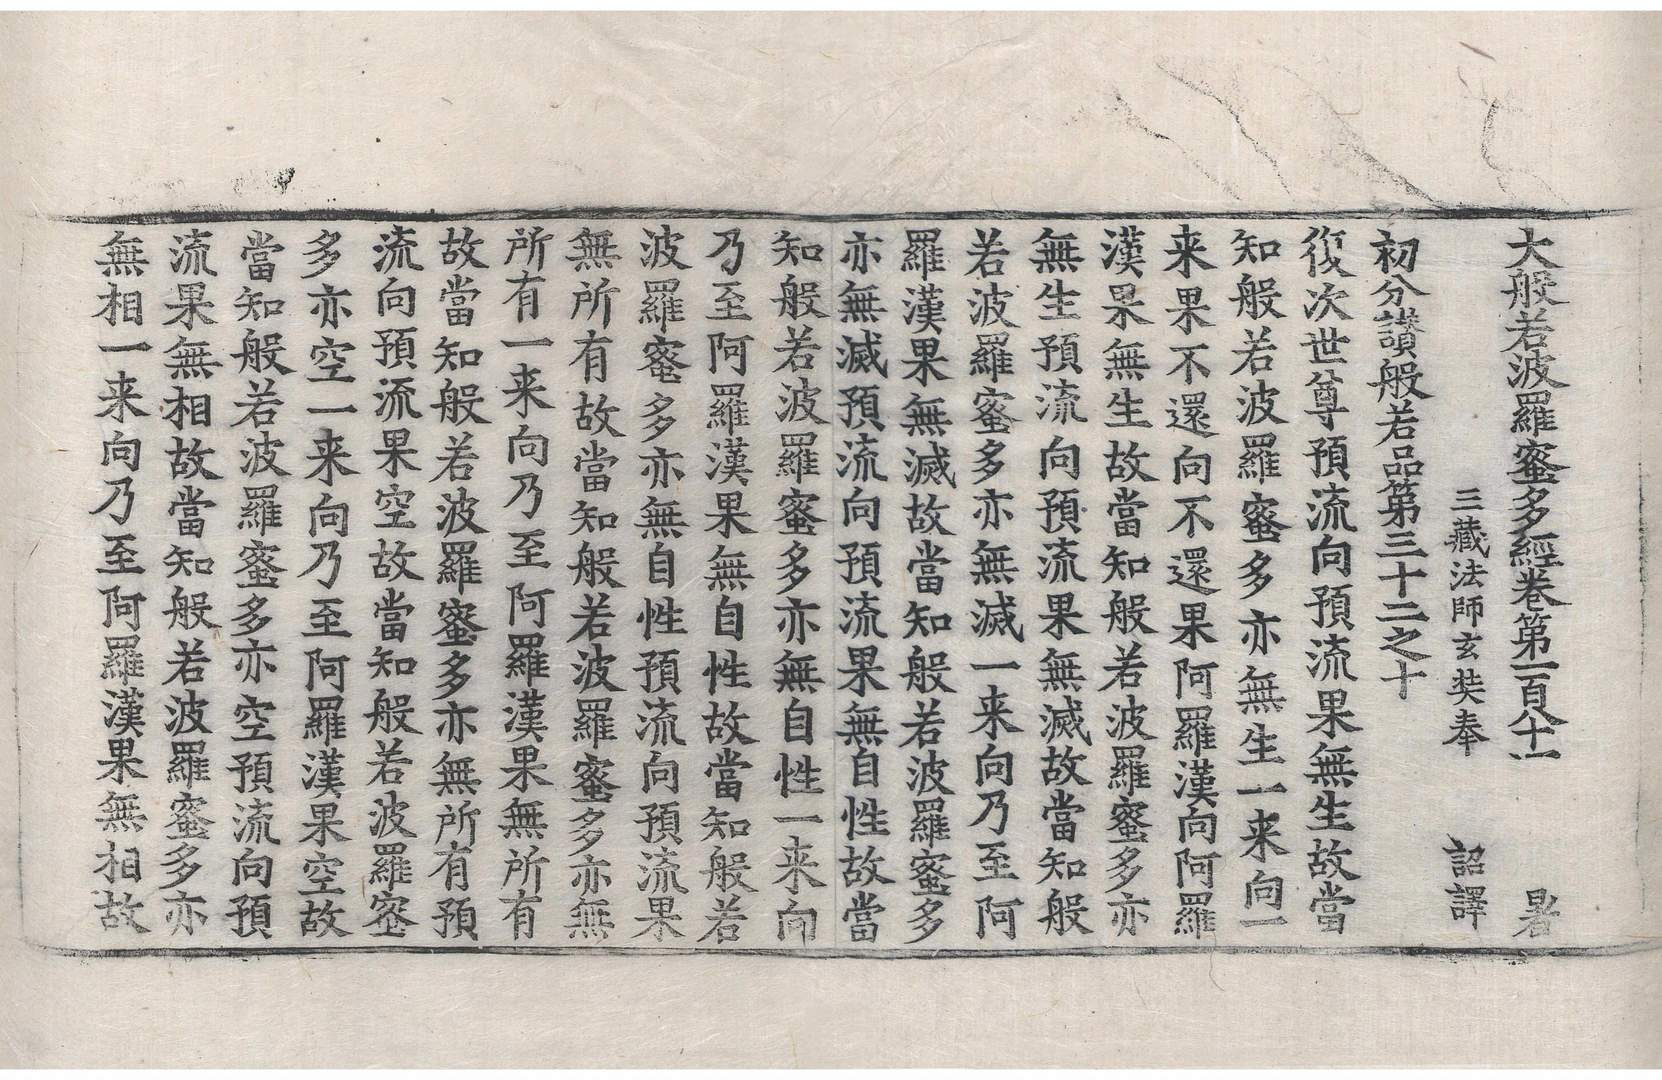 大般若波羅蜜多經卷第一百八十一 暑
三藏法師玄奘奉 詔譯
初分讃般若品第三十二之十
復次世尊預流向預流果無生故當
知般若波羅蜜多亦無生一来向一
来果不還向不還果阿羅漢向阿羅
漢果無生故當知般若波羅蜜多亦
無生預流向預流果無滅故當知般
若波羅蜜多亦無滅一来向乃至阿
羅漢果無滅故當知般若波羅蜜多
亦無滅預流向預流果無自性故當
知般若波羅蜜多亦無自性一来向
乃至阿羅漢果無自性故當知般若
波羅蜜多亦無自性預流向預流果
無所有故當知般若波羅蜜多亦無
所有一来向乃至阿羅漢果無所有
故當知般若波羅蜜多亦無所有預
流向預流果空故當知般若波羅蜜
多亦空一来向乃至阿羅漢果空故
當知般若波羅蜜多亦空預流向預
流果無相故當知般若波羅蜜多亦
無相一来向乃至阿羅漢果無相故